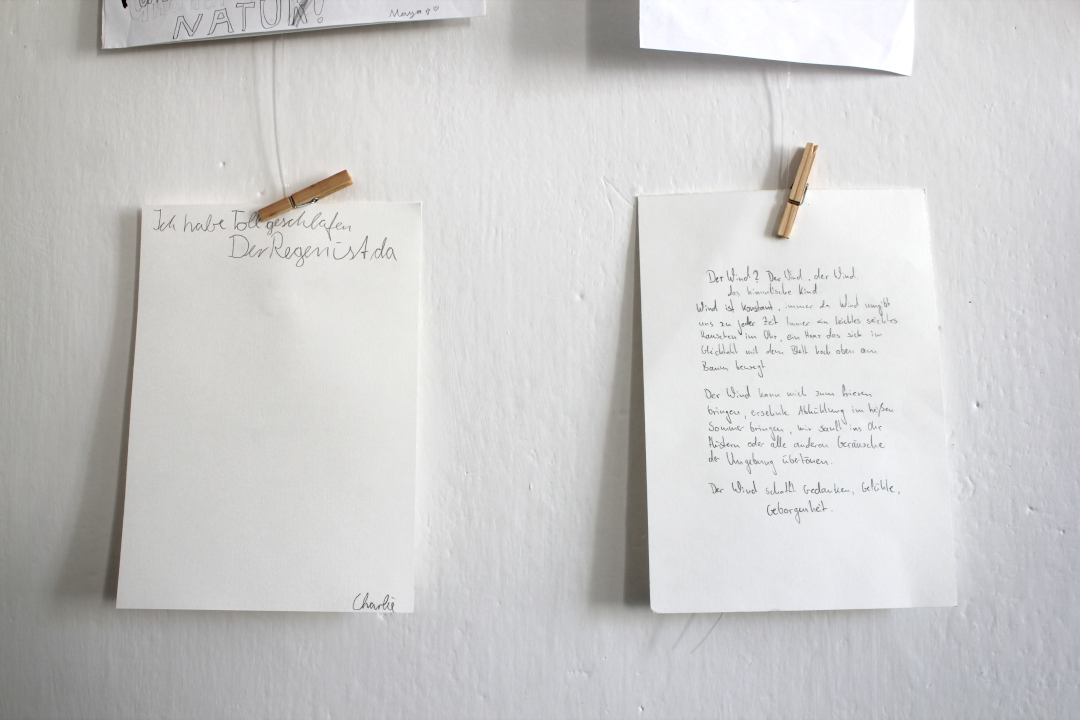 NATUR!
Maya
Ich habe Toll geschlafen
Der Regen ist da
Charlie
Der Wind? Der Wind, der Wind
das himmlische Kind
Wind ist konstant, immer da Wind umgibt
uns zu jeder Zeit Immer ein leichtes seichtes
Rauschen im Ohr, ein Haar das sich im
Gleichtakt mit dem Blatt hoch oben am
Baum bewegt
Der Wind kann mich zum frieren
bringen, ersehnte Abkühlung im heißen
Sommer bringen, mir sanft ins Ohr
flüstern oder alle anderen Geräusche
der Umgebung übertönen.
Der Wind schafft Gedanken, Gefühle,
Geborgenheit.